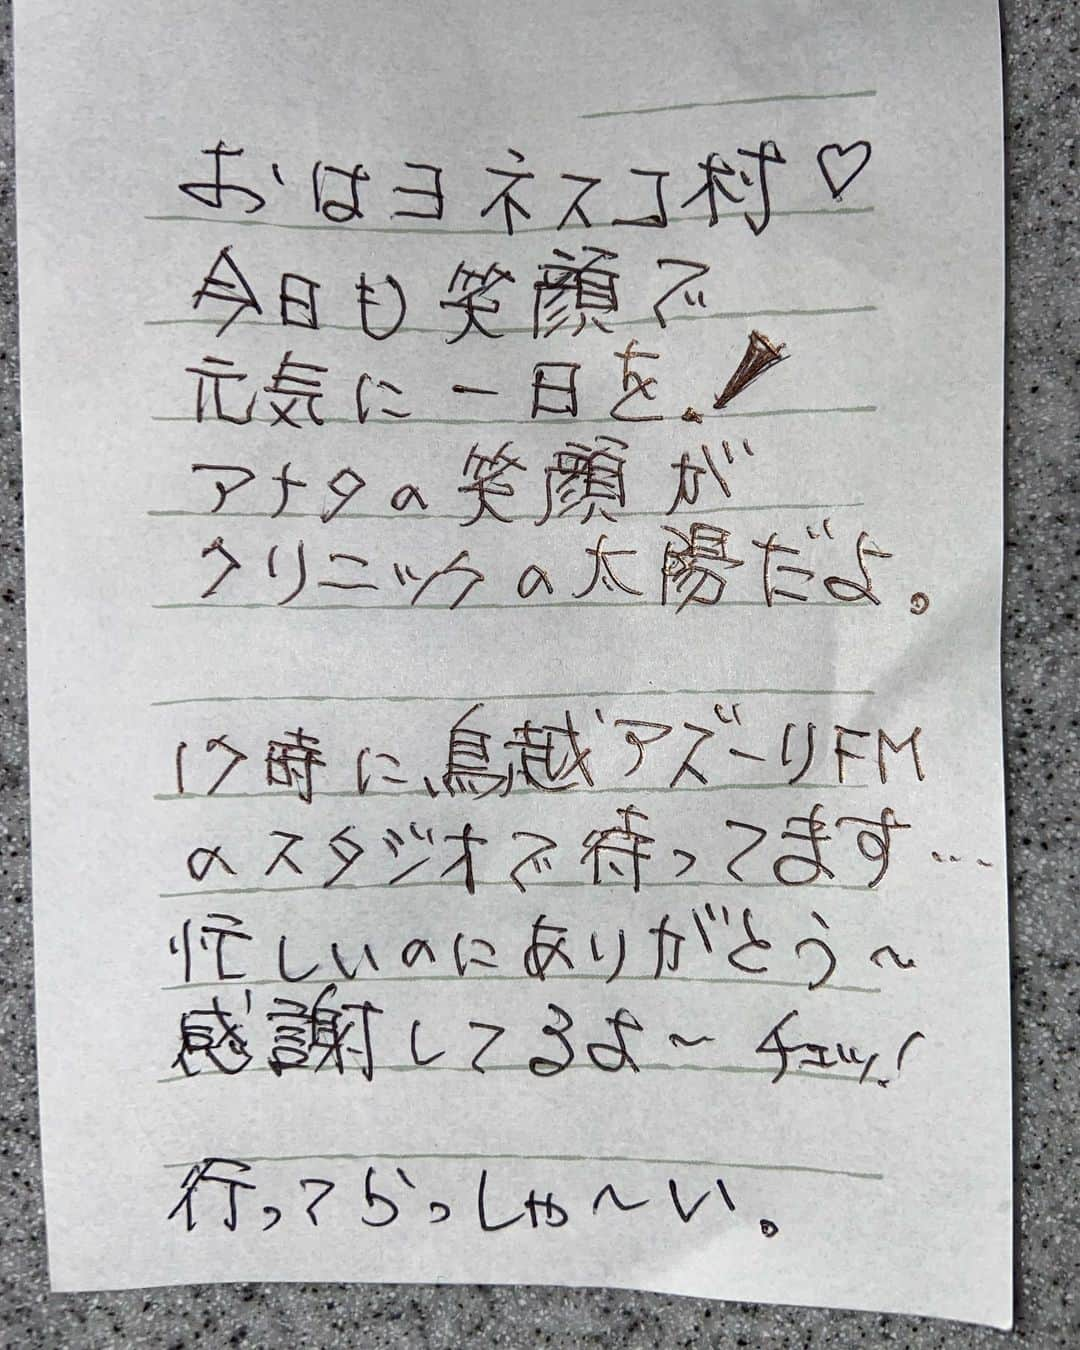 おはヨネスコ村♡
今日も笑顔で
元気に一日を!
アナタの笑顔が
クリニックの太陽だよ。
17時に、鳥越アズーリFM
のスタジオで待ってます…
忙しいのにありがとう〜
感謝してるよ〜チェッ!
行ってらっしゃ〜い。